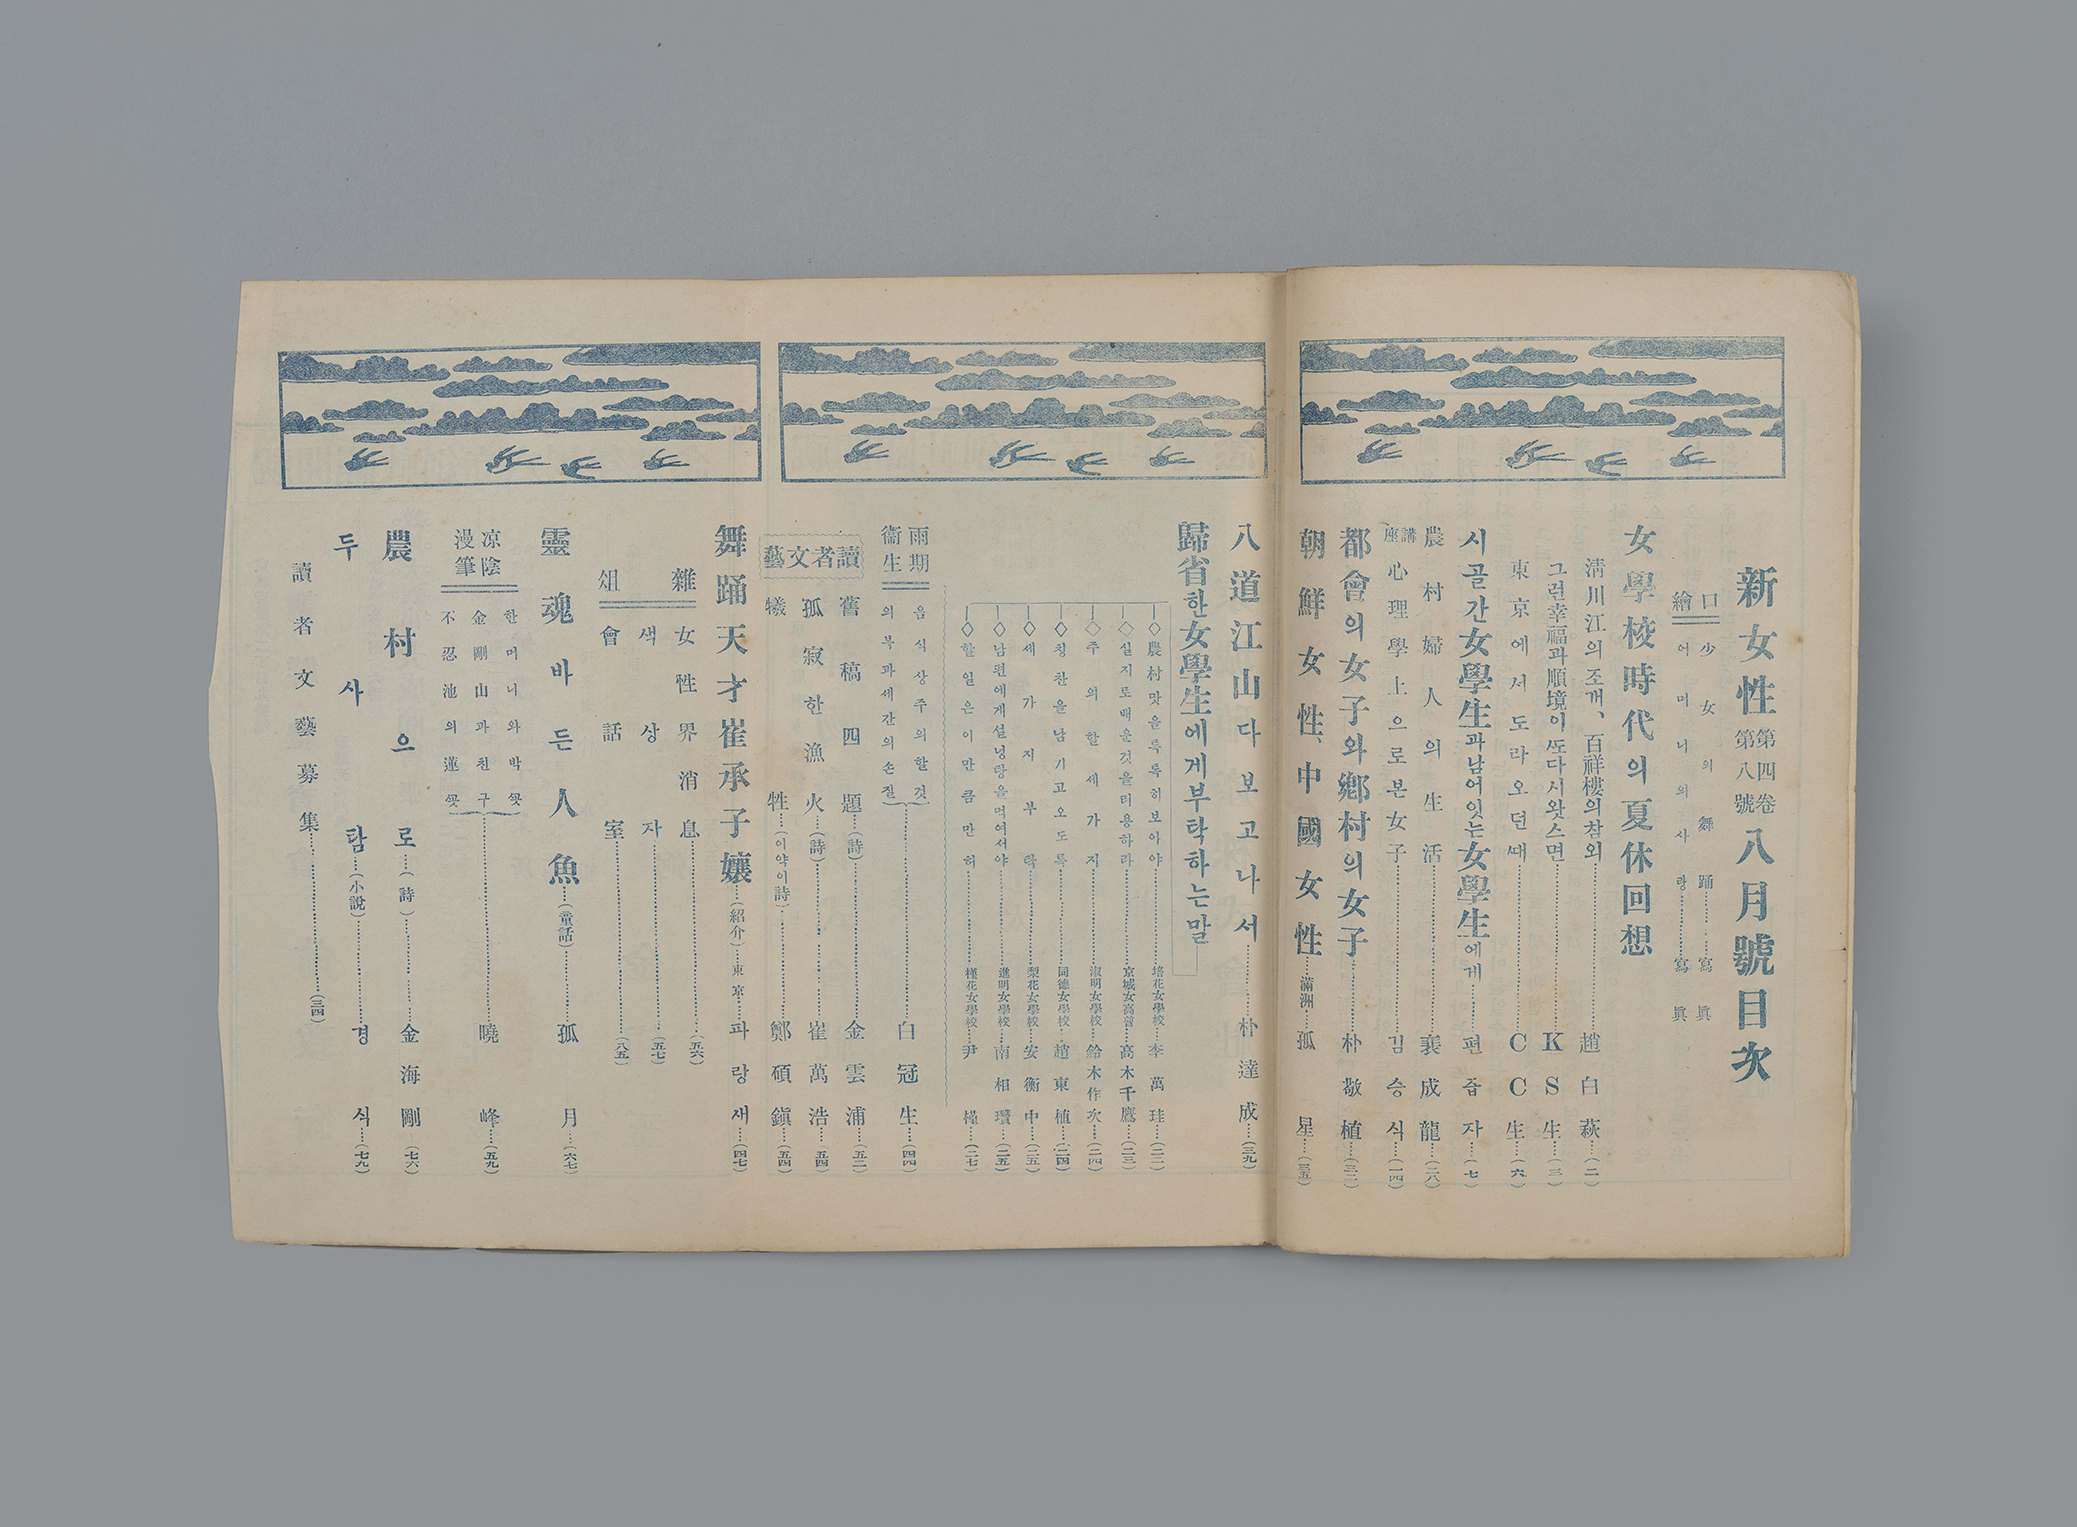 新女性 第四卷第八號 八月號目次
口繪
少女의舞踊……寫眞
어머니의사랑……寫眞
女學校時代의夏休回想
淸川江의조개、百祥樓의참외……趙白萩……(二)
그런幸福과順境이ᄯᅩ다시왓스면……KS生……(三)
東京에서도라오던ᄯᅢ……CC生……(六)
시골간女學生과남어잇는女學生에게……편즙자……(七)
農村婦人의生活……裵成龍……(二八)
講座 心理學上으로본女子……김승식……(一四)
都會의女子와鄕村의女子……朴敬植……(三二)
朝鮮女性、中國女性……滿洲…孤星……(三五)
八道江山다보고나서……朴達成……(三九)
歸省한女學生에게부탁하는말
◇農村맛을톡톡히보아야……培花女學校…李萬珪……(二二)
◇실지로배운것을리용하라……京城女高普…高木千鷹……(二三)
◇주의할세가지……淑明女學校…鈴木作次……(二四)
◇칭찬을남기고오도록……同德女學校…趙東植……(二四)
◇세가지부탁……梨花女學校…安衡中……(二五)
◇남편에게설넝탕을먹여서야……進明女學校…南相瓚……(二五)
◇할일은이만큼만허……槿花女學校…尹槿……(二七)
雨期衞生
음식상주의할것
의복과세간의손질……白冠生……(四四)
讀者文藝
舊稿四題……(詩)……金雲浦……(五二)
孤寂한漁火……(詩)……崔萬浩……(五四)
犧牲……(이약이詩)……鄭碩鎭……(五四)
舞踊天才崔承子孃……(紹介)…東京…파랑새……(四七)
雜俎
女性界消息……(五六)
색상자……(五七)
會話室……(八五)
靈魂바든人魚……(童話)……孤月……(六七)
凉陰漫筆
한머니와박ᄭᅩᆺ
金剛山과친구
不忍池의蓮ᄭᅩᆺ……曉峰……(五九)
農村으로……(詩)……金海剛……(七六)
두사탐……(小說)……경식……(七九)
讀者文藝募集……(三四)